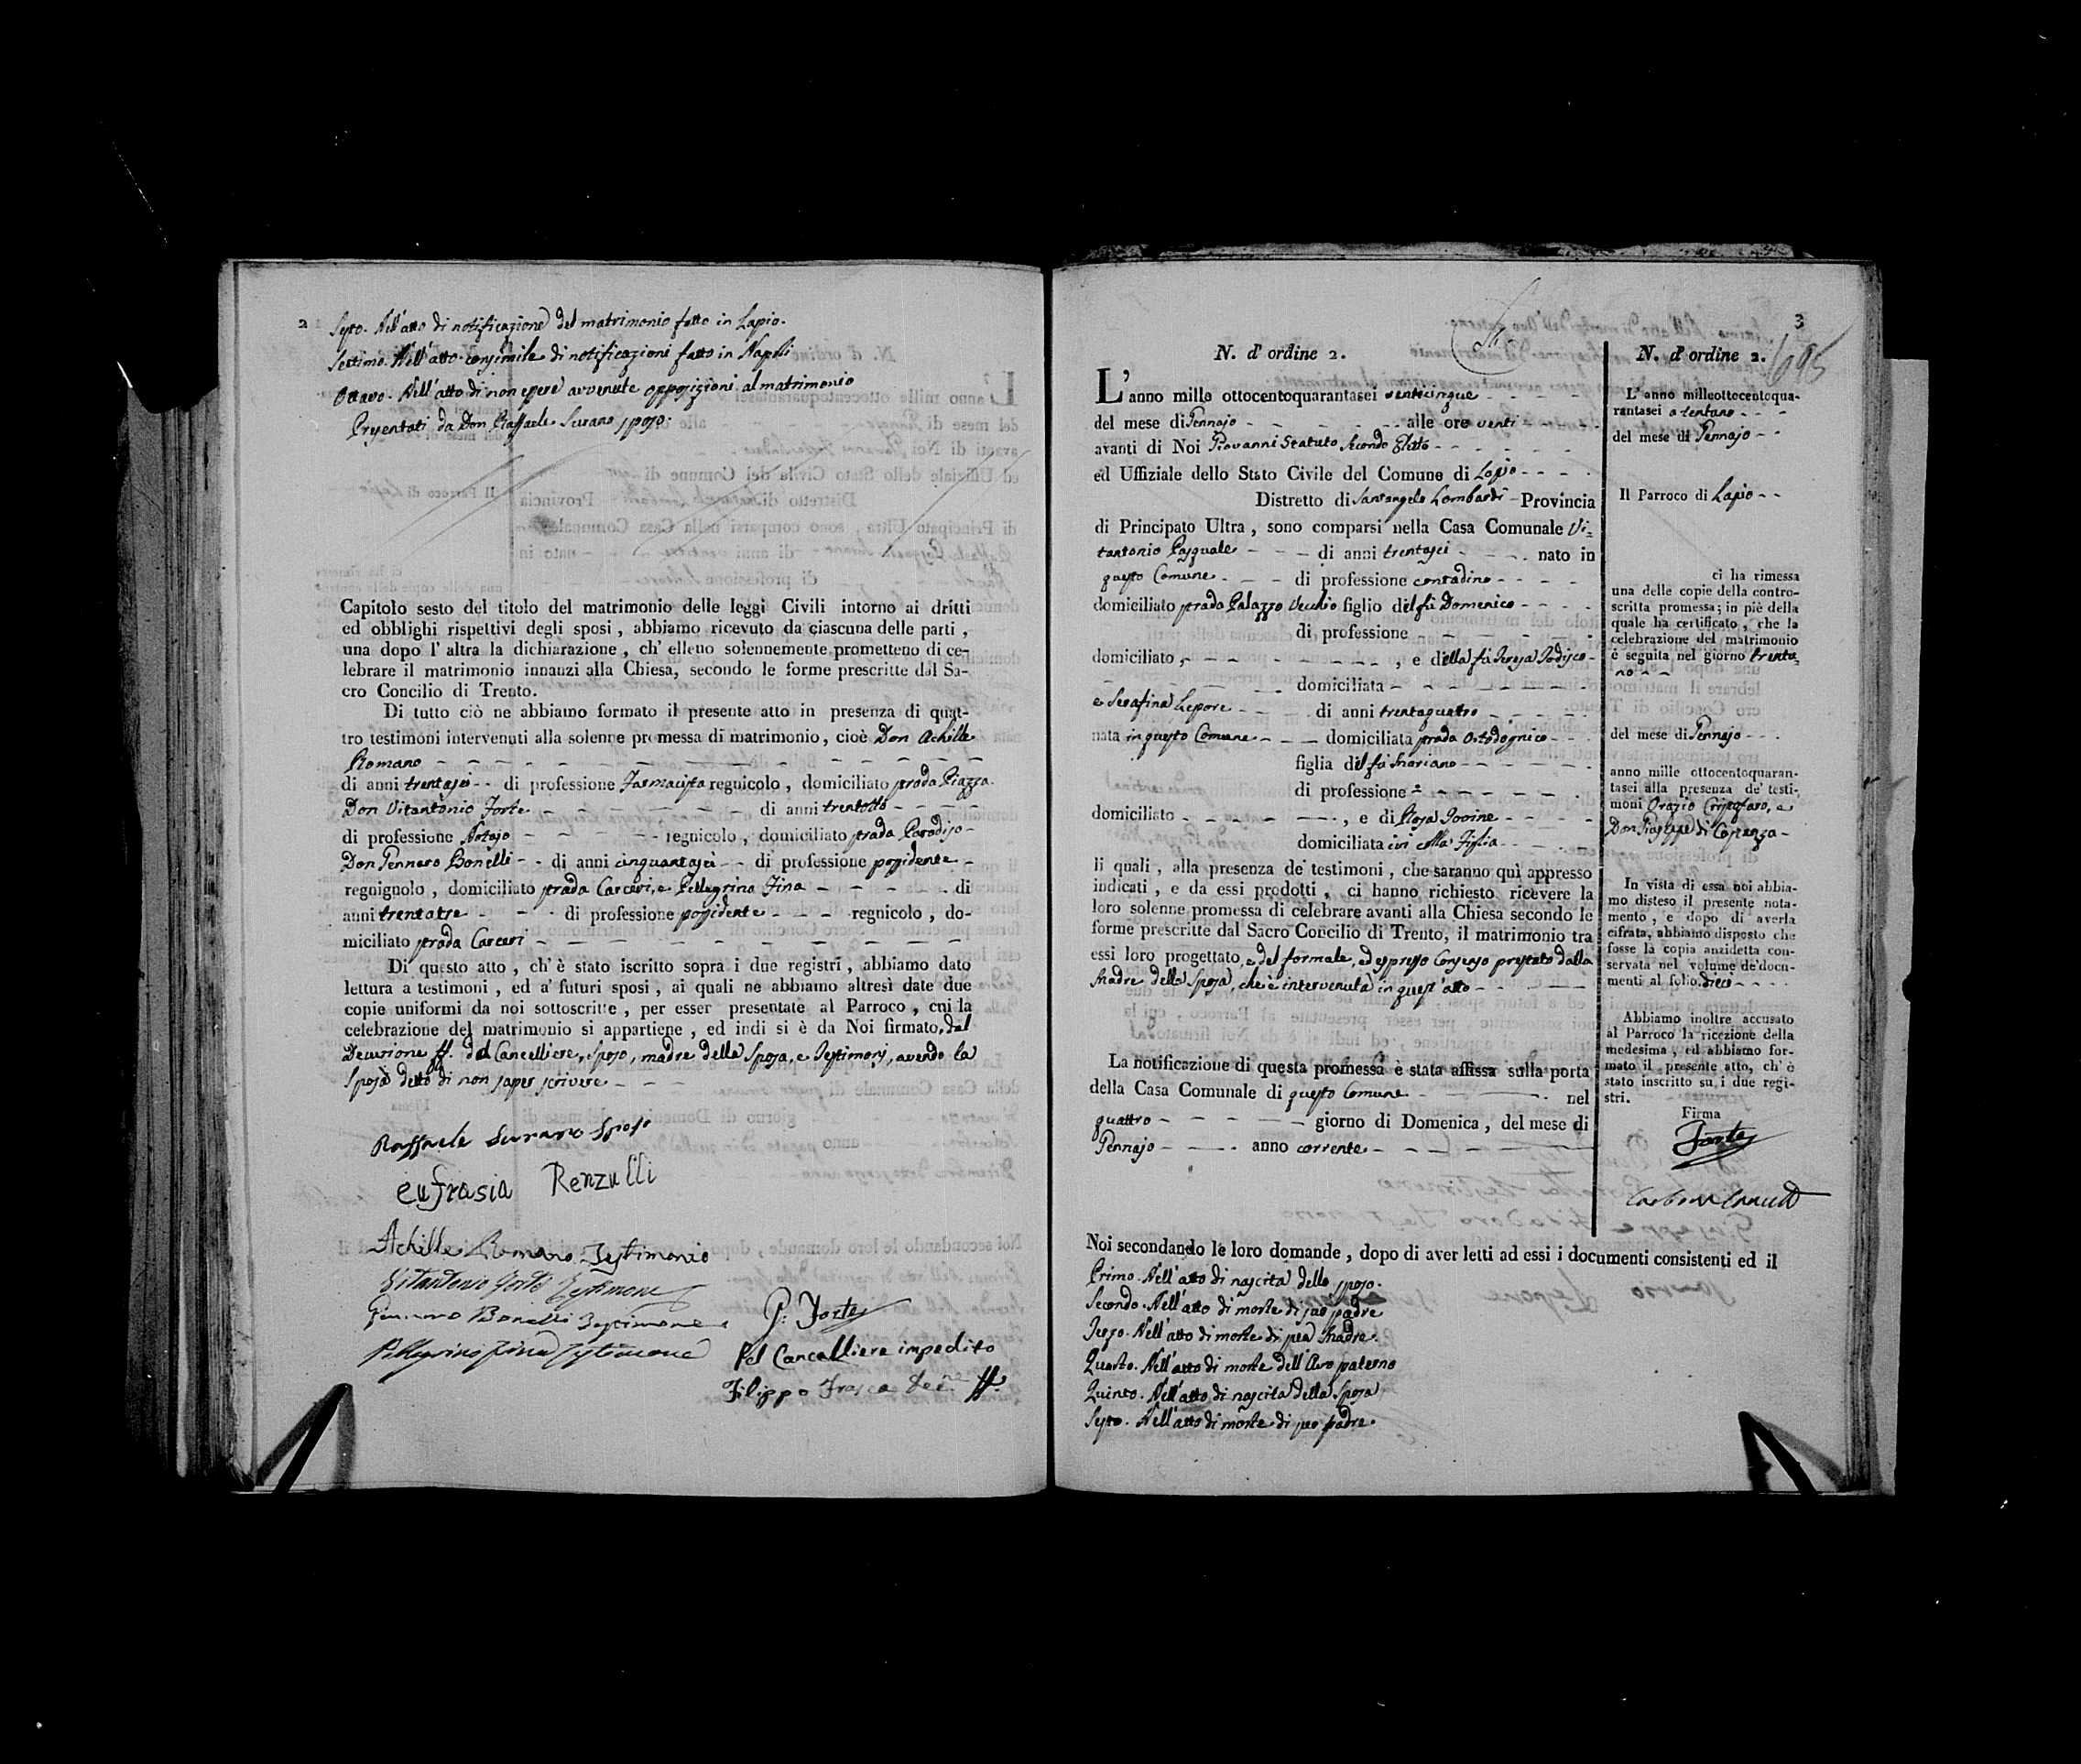 2
Sesto. Nell'atto di notificazione del matrimonio fatto in Lapio.
Settimo. Nell'atto consimile di notificazioni fatto in Napoli
Ottavo. Nell'atto di non essere avvenute opposizioni al matrimonio
Presentati da Don Raffaele Surano sposo.
Capitolo sesto del titolo del matrimonio delle leggi Civili intorno ai dritti
ed obblighi rispettivi degli sposi, abbiamo ricevuto da ciascuna delle parti,
una dopo l'altra la dichiarazione, ch'elleno solennemente prometteno di ce-
lebrare il matrimonio innanzi alla Chiesa, secondo le forme prescritte dal Sa-
cro Concilio di Trento.
Di tutto ciò ne abbiamo formato il presente atto in presenza di quat-
tro testimoni intervenuti alla solenne promessa di matrimonio, cioè Don Achille
Romano
di anni trentasei di professione Farmacista regnicolo, domiciliato strada Piazza.
Don Vitantonio Forte di anni trentotto
di professione Notajo regnicolo, domiciliato strada Paradiso
Don Gennaro Bonelli di anni cinquantasei di professione possidente
regnignolo, domiciliato strada Carceri, e Pellegrino Fina di
anni trentatre di professione possidente regnicolo, do-
miciliato strada Carceri
Di questo atto, ch'è stato iscritto sopra i due registri, abbiamo dato
lettura a testimoni, ed a' futuri sposi, ai quali ne abbiamo altresì date due
copie uniformi da noi sottoscritte, per esser presentate al Parroco, cui la
celebrazione del matrimonio si appartiene, ed indi si è da Noi firmato, dal
Decurione ff. del Cancelliere, Sposo, madre della Sposa, e Testimonj, avendo la
Sposa detto di non saper scrivere
Raffaele Surano Sposo
Eufrasia Renzulli
Achille Romano Testimonio
Vitantonio Forte Testimone
Gennaro Bonelli Testimone
Pellegrino Fina Testimone
G: Forte
Pel Cancelliere impedito
Filippo Frasca ff.
3
695
N. d'ordine 2.
L'anno mille ottocentoquarantasei venticinque
del mese di Gennajo alle ore venti
avanti di Noi Giovanni Statuto Secondo Eletto
ed Uffiziale dello Stato Civile del Comune di Lapio
Distretto di Santangelo Lombardi Provincia
di Principato Ultra, sono comparsi nella Casa Comunale Vi-
tantonio Pasquale di anni trentasei nato in
questo Comune di professione contadino
domiciliato strada Palazzo Vecchio figlio del fù Domenico
di professione
domiciliato, e della fù Teresa Todisco
domiciliata
e Serafina Lepore di anni trentaquattro
nata in questo Comune domiciliata strada Ortodognico
figlia del fù Mariano
di professione
domiciliato, e di Rosa Iovine
domiciliata ivi colla Figlia
li quali, alla presenza de' testimoni, che saranno quì appresso
indicati, e da essi prodotti, ci hanno richiesto ricevere la
loro solenne promessa di celebrare avanti alla Chiesa secondo le
forme prescritte dal Sacro Concilio di Trento, il matrimonio tra
essi loro progettato, e del formale, ed espresso consenso prestato dalla
Madre della Sposa, che è intervenuta in quest'atto
La notificazione di questa promessa è stata affissa sulla porta
della Casa Comunale di questo Comune nel
quattro giorno di Domenica, del mese di
Gennajo anno corrente
Noi secondando le loro domande, dopo di aver letti ad essi i documenti consistenti ed il
Primo. Nell'atto di nascita dello sposo.
Secondo. Nell'atto di morte di suo padre
Terzo. Nell'atto di morte di sua Madre.
Quarto. Nell'atto di morte dell'Avo paterno
Quinto. Nell'atto di nascita della Sposa
Sesto. Nell'atto di morte di suo padre.
N. d'ordine 2.
L'anno milleottocentoqua-
rantasei a trentano
del mese di Gennajo
Il Parroco di Lapio
ci ha rimessa
una delle copie della contro-
scritta promessa; in piè della
quale ha certificato, che la
celebrazione del matrimonio
è seguita nel giorno trenta-
no
del mese di Gennajo
anno mille ottocentoquaran-
tasei alla presenza de' testi-
moni Orazio Cristofaro, e
Don Giuseppe di Cosenza
In vista di essa noi abbia-
mo disteso il presente nota-
mento, e dopo di averla
cifrata, abbiamo disposto che
fosse la copia anzidetta con-
servata nel volume de' docu-
menti al folio. dieci
Abbiamo inoltre accusato
al Parroco la ricezione della
medesima, ed abbiamo for-
mato il presente atto, ch'è
stato inscritto su i due regi-
stri.
Firma
Forte